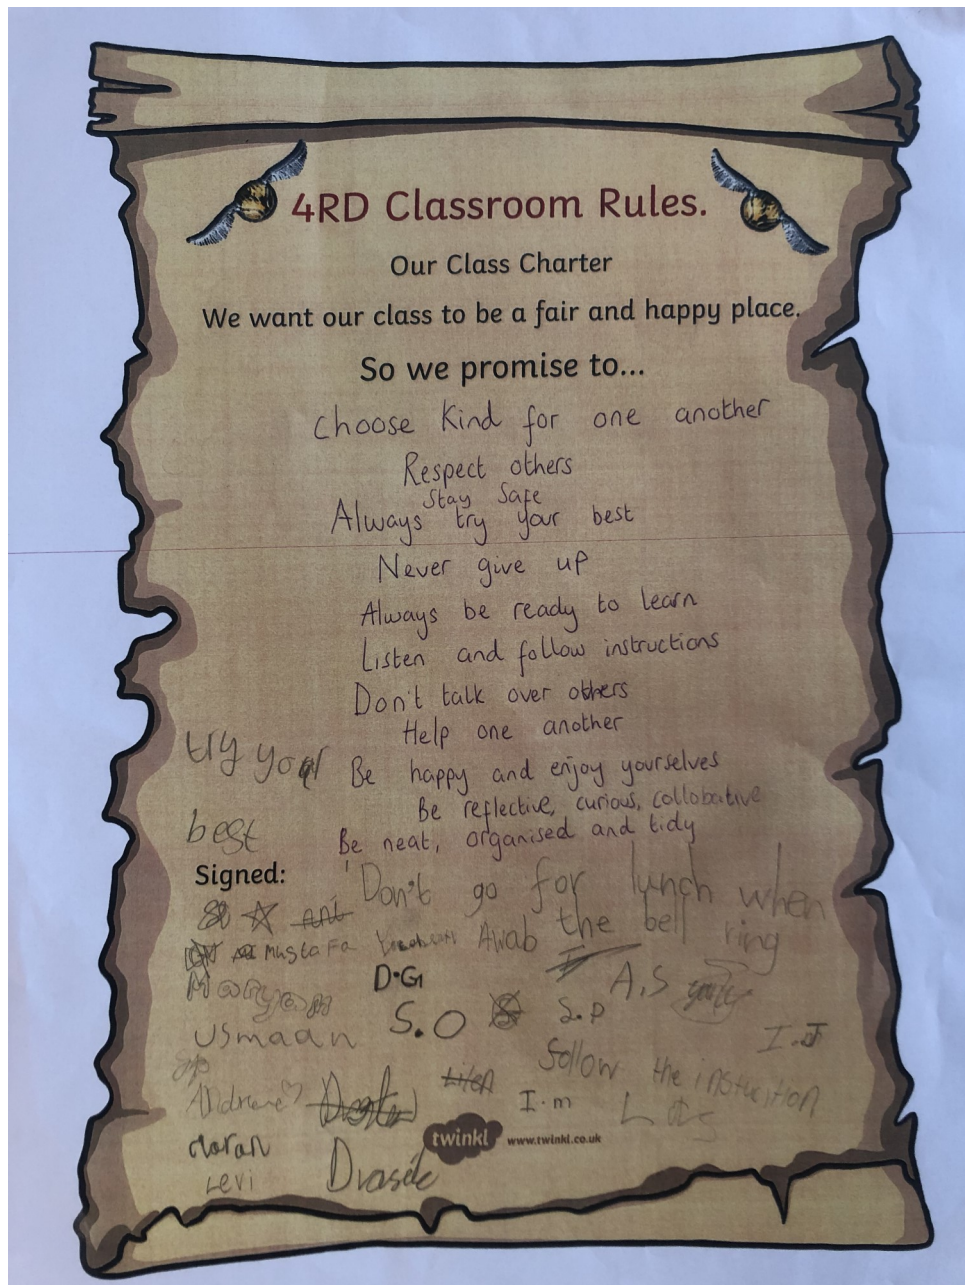 4RD Classroom Rules.
Our Class Charter
We want our class to be a fair and happy place.
So we promise to...
Choose kind for one another
Respect others
Stay Safe
Always try your best
Never give up
Always be ready to learn
Listen and follow instructions
Don't talk over others
Help one another
try your
Be happy and enjoy yourselves
Be reflective, curious, collobative
best
Be neat, organised and tidy
Signed:
Don't go for lunch when
the bell ring
Mustafa
Awab
D.G
A.S
S.O
S.P
I.J
Usmaan
follow the instucition
I.m
twinkl www.twinkl.co.uk
Levi